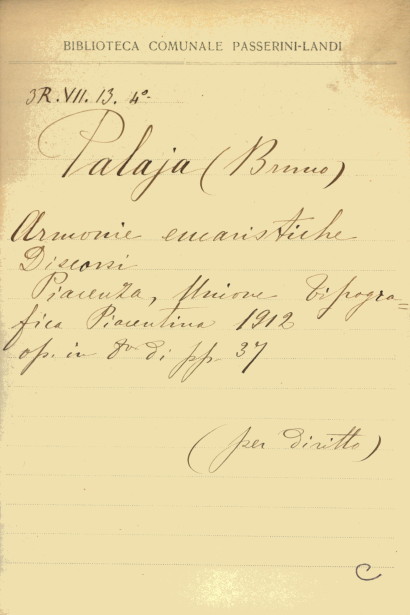 BIBLIOTECA COMUNALE PASSERINI-LANDI
3R. VII. 13. 4º.
Palaja (Bruno)
Armonie eucaristiche
Discorsi
Piacenza, Unione Tipogra=
fica Piacentina 1912
op. in 8º di pp. 37
(per diritto)
C